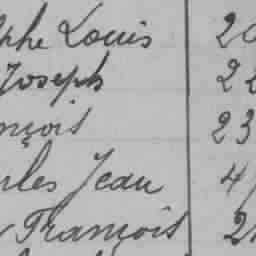 phe Louis 2
Joseph 2
nçois 23
rles Jean 4
François 2